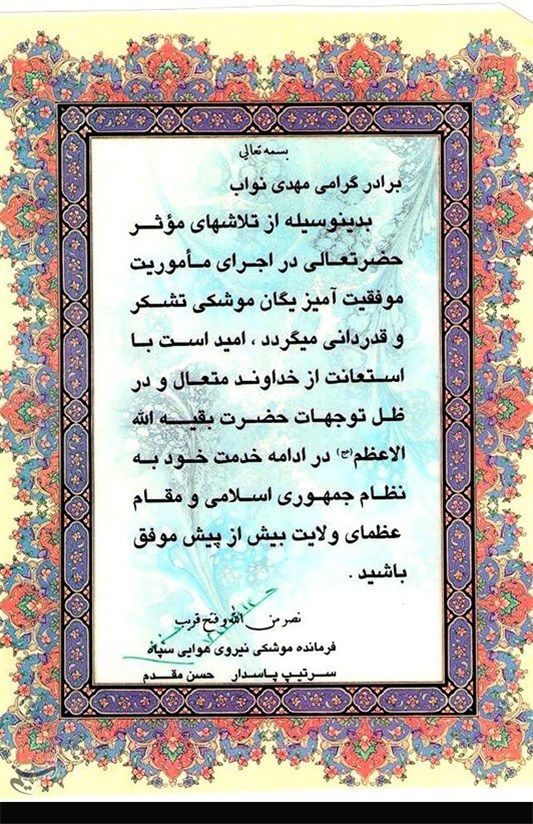 بسمه تعالی
برادر گرامی مهدی نواب
بدینوسیله از تلاشهای مؤثر
حضرتعالی در اجرای مأموریت
موفقیت آمیز یگان موشکی تشکر
و قدردانی میگردد ، امید است با
استعانت از خداوند متعال و در
ظل توجهات حضرت بقیه الله
الاعظم (عج) در ادامه خدمت خود به
نظام جمهوری اسلامی و مقام
عظمای ولایت بیش از پیش موفق
باشید .
نصر من الله و فتح قریب
فرمانده موشکی نیروی هوایی سپاه
سرتیپ پاسدار حسن مقدم